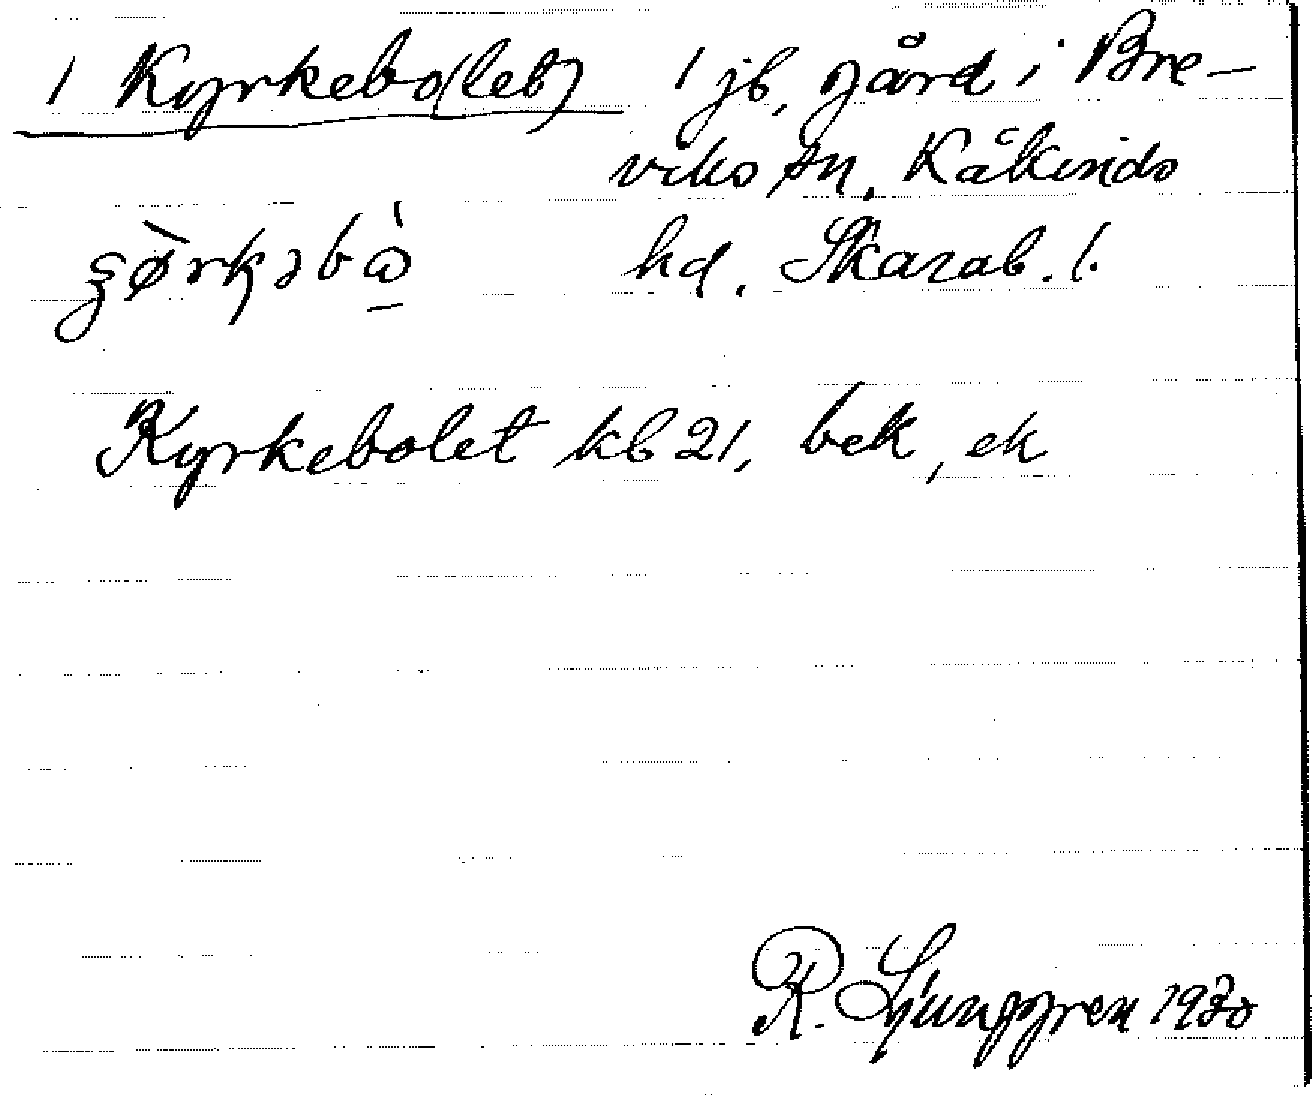 1 Kyrkebo(let) 1 jb, gård i Bre-
viks sn, Kåkinds
hd. Skarab. l.
Kyrkebolet kb 21, bek, ek
R. Ljunggren 1930